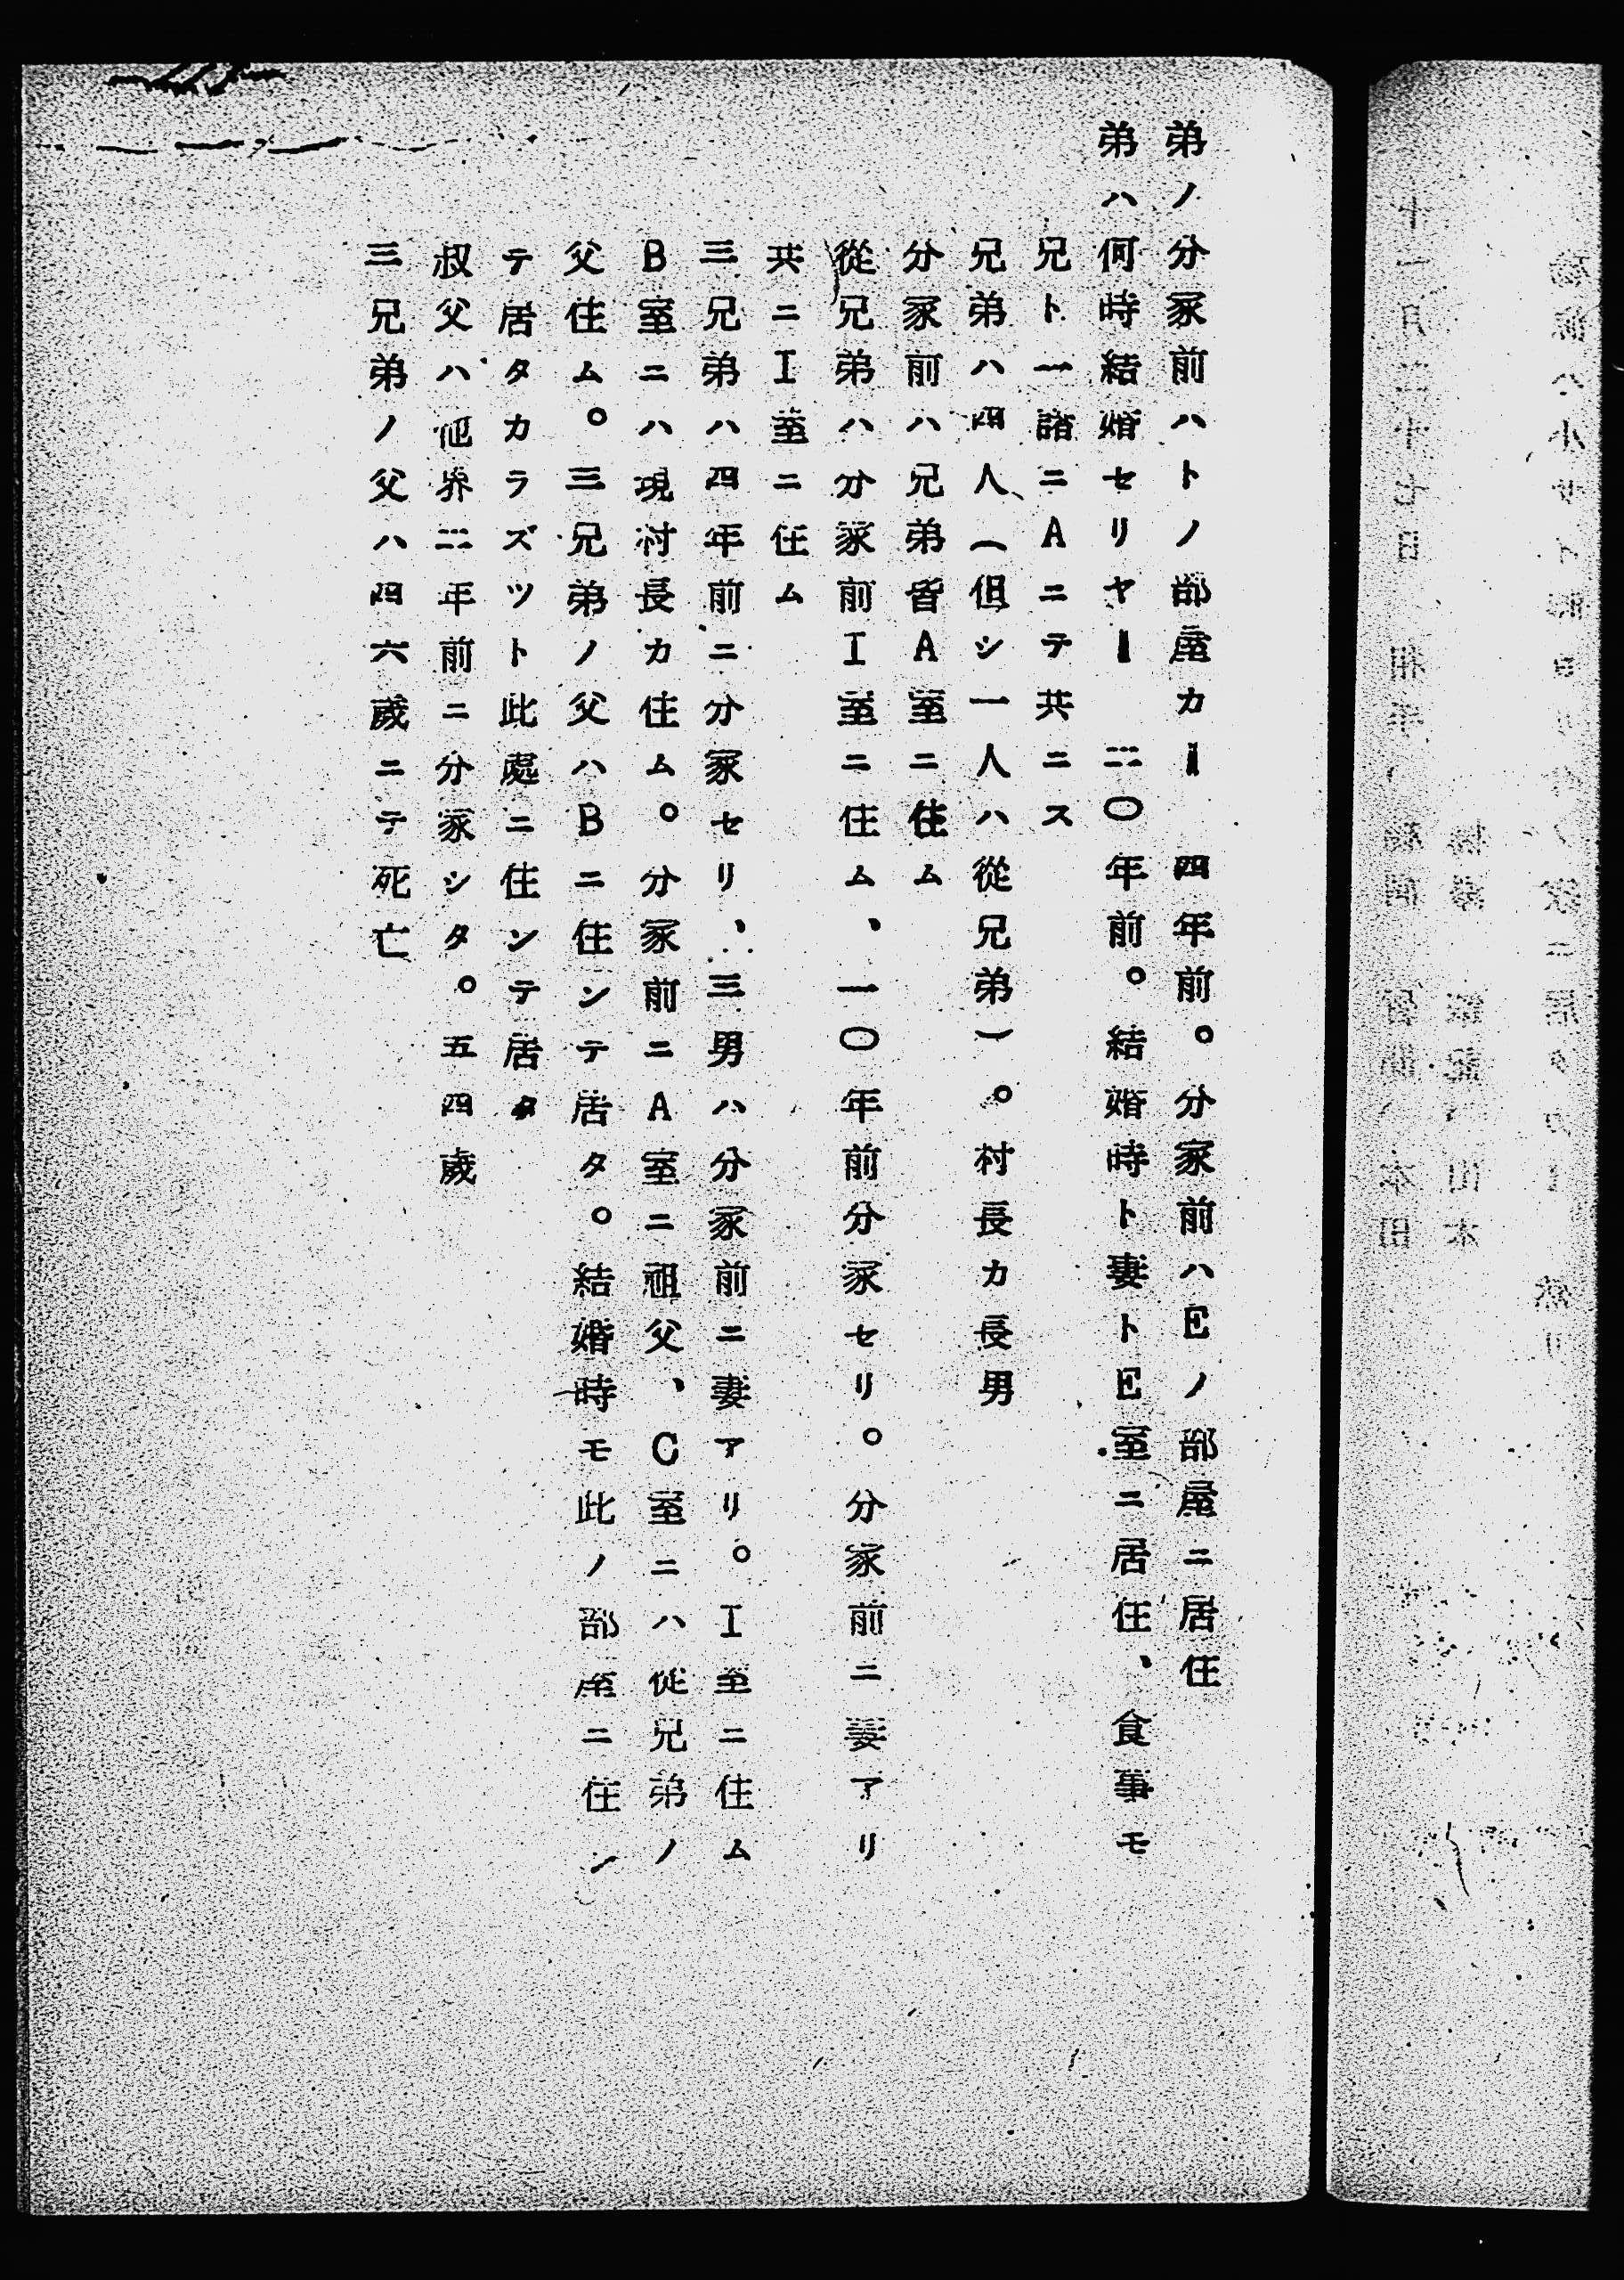 弟ノ分家前ハトノ部屋カー　四年前。分家前ハEノ部屋ニ居住
弟ハ何時結婚セリヤー　二〇年前。結婚時ト妻トE室ニ居住、食事モ
兄ト一諸ニAニテ共ニス
兄弟ハ四人（但シ一人ハ從兄弟）。村長カ長男
分家前ハ兄弟皆A室ニ住ム
從兄弟ハ分家前I室ニ住ム、一〇年前分家セリ。分家前ニ妻アリ
共ニI室ニ住ム
三兄弟ハ四年前ニ分家セリ、三男ハ分家前ニ妻アリ。I室ニ住ム
B室ニハ現村長カ住ム。分家前ニA室ニ祖父、C室ニハ從兄弟ノ
父住ム。三兄弟ノ父ハBニ住ンテ居タ。結婚時モ此ノ部屋ニ住ン
テ居タカラズツト此處ニ住ンテ居タ
叔父ハ他界二年前ニ分家シタ。五四歳
三兄弟ノ父ハ四六歳ニテ死亡